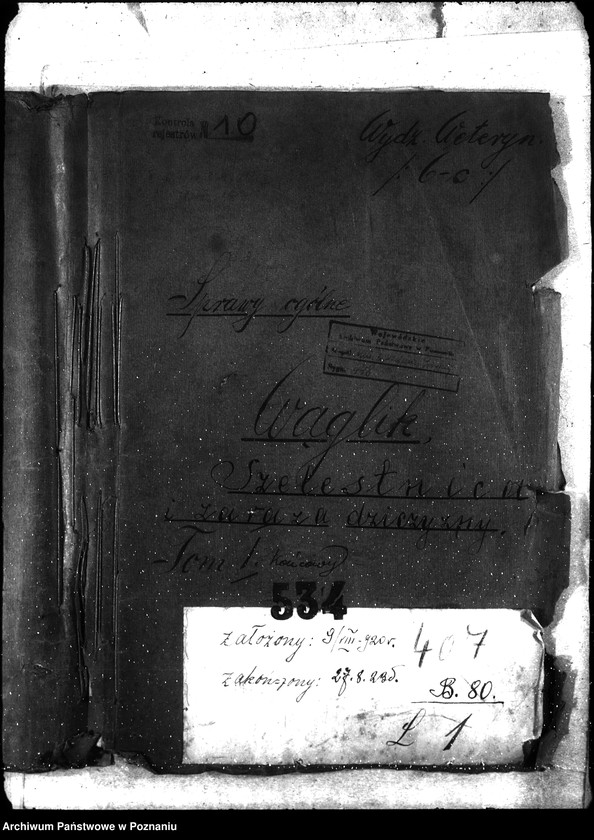 Kontrola
rejestrów № 10
Wydz. Weteryn.
/: 6-c :/
Sprawy ogólne
Wojewódzkie
Archiwum Państwowe w Poznaniu
Wąglik,
Szelestnica
i zaraza dziczyzny.
Tom I. Końcowy
534
założony: 9/VIII.920r.
407
zakończony:
B. 80.
Ł 1
Archiwum Państwowe w Poznaniu